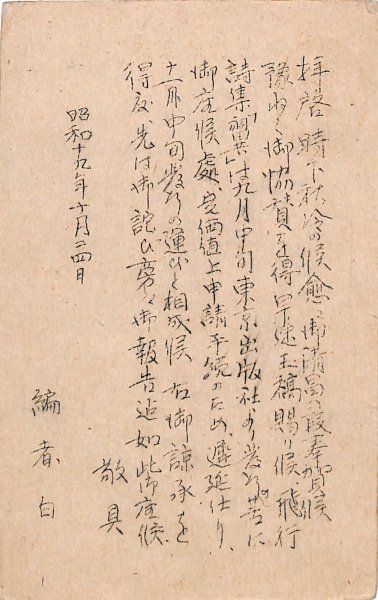 拝啓 時下秋冷の候愈々御清昌の段奉賀候
予ねて御協賛を得早速玉稿賜り候飛行
詩集「」は九月中旬東京出版社より発行の筈に
御座候處、定価値上申請手続のため、遅延仕り、
十一月中旬発行の運びと相成候 右御諒承を
得度、先は御詫び旁々御報告迄如此御座候
敬具
昭和十九年十月二四日
編者白